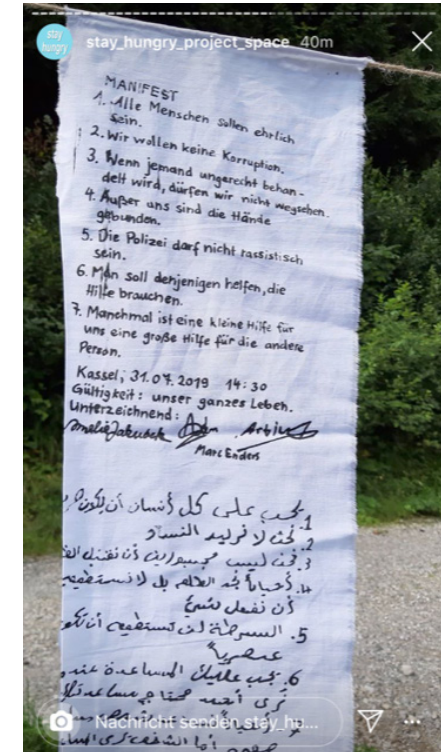 stay hungry
stay_hungry_project_space 40m
MANIFEST
1. Alle Menschen sollen ehrlich
sein.
2. Wir wollen keine Korruption.
3. Wenn jemand ungerecht behan-
delt wird, dürfen wir nicht wegsehen.
4. Außer uns sind die Hände
gebunden.
5. Die Polizei darf nicht rassistisch
sein.
6. Man soll denjenigen helfen, die
Hilfe brauchen.
7. Manchmal ist eine kleine Hilfe für
uns eine große Hilfe für die andere
Person.
Kassel, 31.07.2019 14:30
Gültigkeit: unser ganzes Leben.
Unterzeichnend:
Marc Enders
1. يجب على كل أنسان أن يكون
2. نحن لا نريد الفساد
3. نحن ليس مجبورين أن نقبل
4. أحياناً نجد الظلم بل لا نستطيع
أن نفعل شيئ
5. الشرطة لا تستطيع أن تكون
عنصرية
6. يجب عليك المساعدة عند
ترى أحد محتاج مساعدة
Nachricht senden stay_hu...